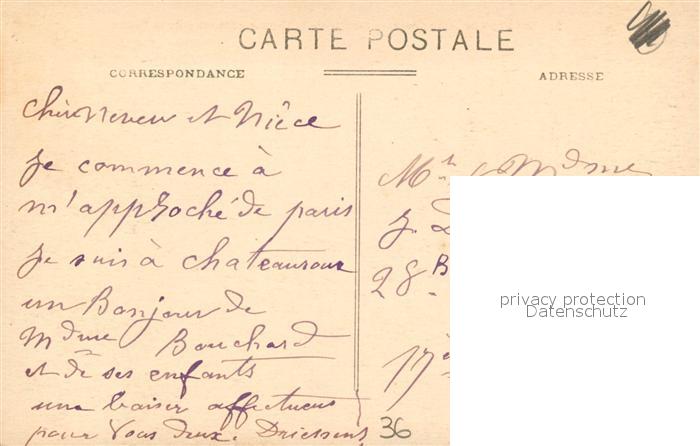 CARTE POSTALE
CORRESPONDANCE
ADRESSE
Cher Neveu et Niêce
Je commence à
m'approché de paris
Je suis à chateauroux
un Bonjour de
Mdme Bouchard
et de ses enfants
une baiser affectueus
pour Vous deux. Driessens
36
Mr & Mdme
J. D
28 B
17
privacy protection
Datenschutz